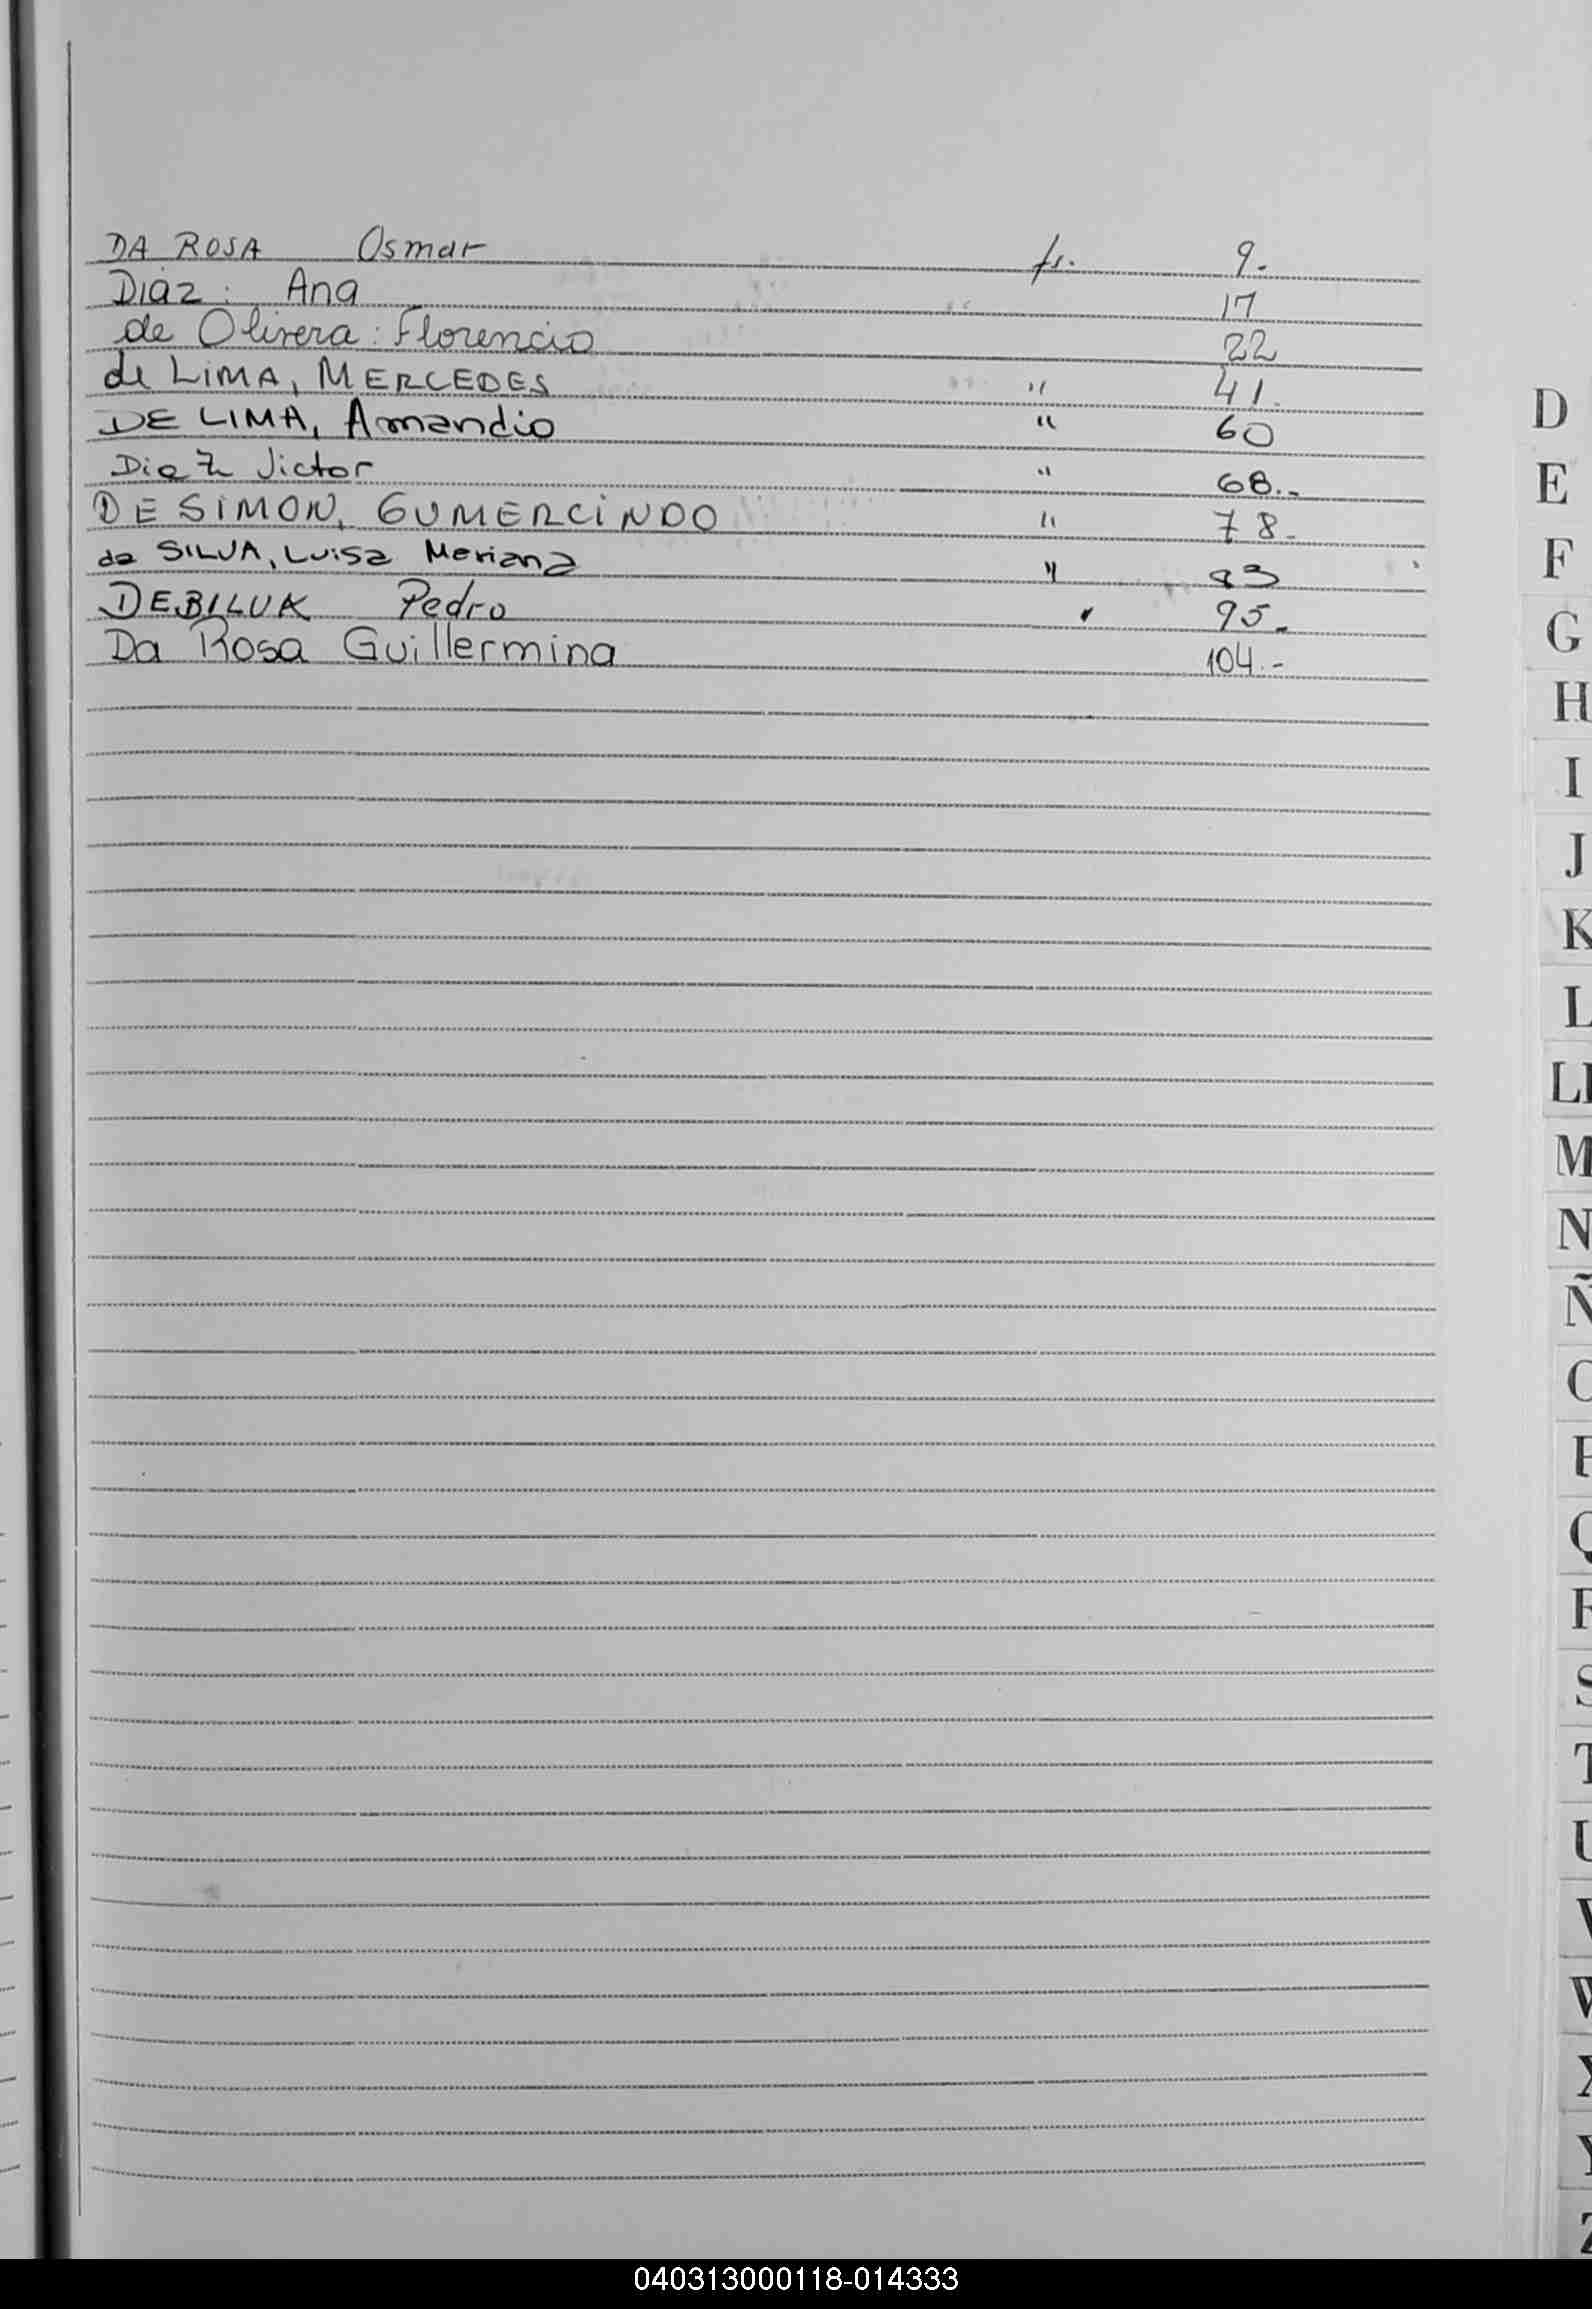 DA ROSA Osmar fs. 9.-
Diaz: Ana 17
de Olivera: Florencio 22
de LiMA, MERCEDES " 41.
DE LIMA, Amandio " 60
Diaz Victor " 68.-
DE SIMON, GUMERCINDO " 78.-
da SILVA, Luisa Mariana " 83
DEBILUK Pedro " 95.-
Da Rosa Guillermina 104.-
D
E
F
G
H
I
J
K
L
Ll
M
N
Ñ
O
P
Q
R
S
T
U
V
W
X
Y
Z
040313000118-014333